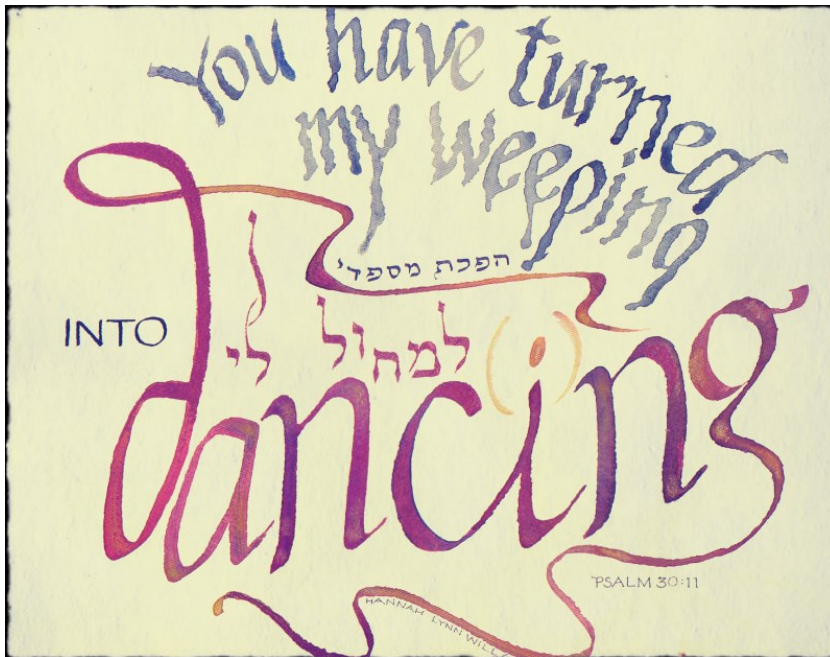 You have turned
my weeping
הפכת מספדי
INTO
למחול לי
dancing
PSALM 30:11
HANNAH LYNN